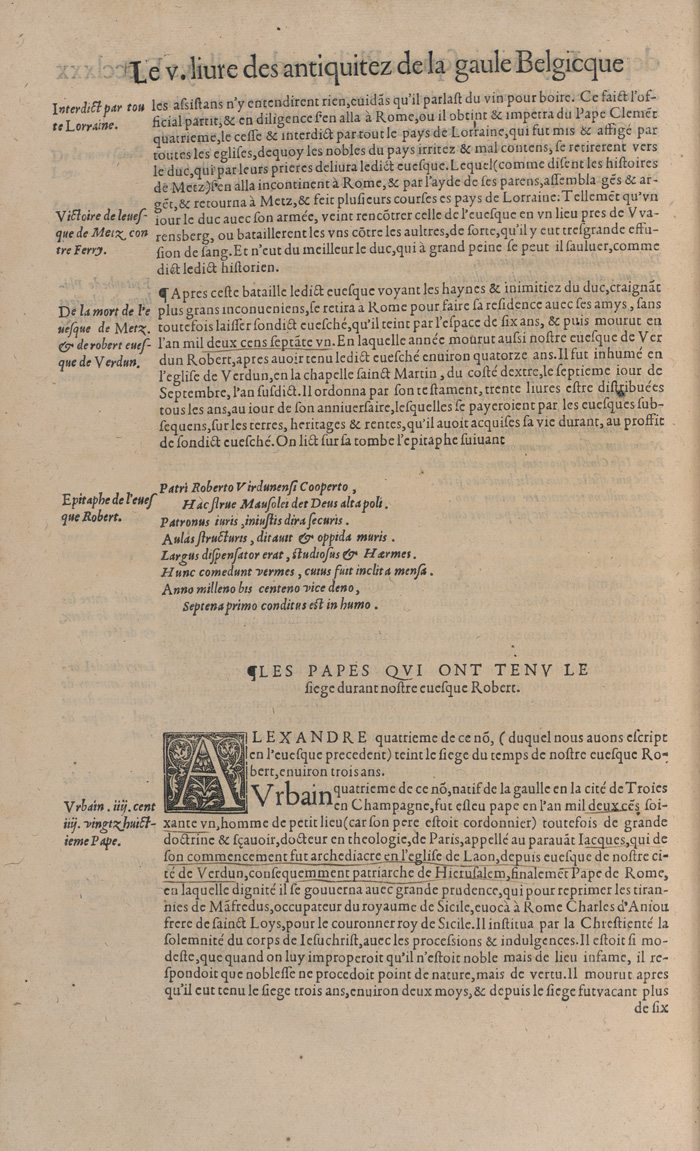 Le v. liure des antiquitez de la gaule Belgicque
Interdict par tou
te Lorraine.
les aſsiſtans n'y entendirent rien,cuidãs qu'il parlaſt du vin pour boire. Ce faict l'of-
ficial partit,& en diligence ſ'en alla à Rome,ou il obtint & impetra du Pape Clemẽt
quatrieme,le ceſſe & interdict par tout le pays de Lorraine,qui fut mis & affigé par
toutes les egliſes,dequoy les nobles du pays irritez & mal contens, ſe retirerent vers
le duc,qui par leurs prieres deliura ledict eueſque.Lequel(comme diſent les hiſtoires
de Metz)ſ'en alla incontinent à Rome,& par l'ayde de ſes parens,aſſembla gẽs & ar-
gẽt,& retourna à Metz,& feit pluſieurs courſes es pays de Lorraine:Tellemẽt qu'vn
Victoire de leueſ-
que de Metz con
tre Ferry.
iour le duc auec ſon armée, veint rencõtrer celle de l'eueſque en vn lieu pres de Vva-
rensberg, ou bataillerent les vns cõtre les aultres,de ſorte,qu'il y eut treſgrande effu-
ſion de ſang. Et n'eut du meilleur le duc,qui à grand peine ſe peut il ſauluer,comme
dict ledict hiſtorien.
¶ Apres ceſte bataille ledict eueſque voyant les haynes & inimitiez du duc,craignãt
De la mort de l'e
ueſque de Metz.
& de robert eueſ-
que de Verdun.
plus grans inconueniens,ſe retira à Rome pour faire ſa reſidence auec ſes amys , ſans
toutefois laiſſer ſondict eueſché,qu'il teint par l'eſpace de ſix ans, & puis mourut en
l'an mil deux cens ſeptãte vn.En laquelle année mourut auſsi noſtre eueſque de Ver
dun Robert,apres auoir tenu ledict eueſché enuiron quatorze ans.Il fut inhumé en
l'egliſe de Verdun,en la chapelle ſainct Martin , du coſté dextre,le ſeptieme iour de
Septembre,l'an ſuſdict.Il ordonna par ſon teſtament, trente liures eſtre diſtribuées
tous les ans,au iour de ſon anniuerſaire,leſquelles ſe payeroient par les eueſques ſub-
ſequens,ſur les terres, heritages & rentes,qu'il auoit acquiſes ſa vie durant, au proffit
de ſondict eueſché.On lict ſur ſa tombe l'epitaphe ſuiuant
Epitaphe de l'eueſ
que Robert.
Patri Roberto Virdunenſi Cooperto ,
Hac ſtrue Mauſolei det Deus alta poli.
Patronus iuris ,iniuſtis dira ſecuris .
Aulas ſtructuris , ditauit & oppida muris .
Largus diſpenſator erat , ſtudioſus & Hærmes .
Hunc comedunt vermes , cuius fuit inclita menſa .
Anno milleno bis centeno vice deno,
Septena primo conditus eſt in humo .
¶LES PAPES QVI ONT TENV LE
ſiege durant noſtre eueſque Robert.
ALEXANDRE quatrieme de ce nõ, ( duquel nous auons eſcript
en l'eueſque precedent) teint le ſiege du temps de noſtre eueſque Ro-
bert,enuiron trois ans.
Vrbain . iiij. cent
iiij. vingtz huict-
ieme Pape.
Vrbain quatrieme de ce nõ,natif de la gaulle en la cité de Troies
en Champagne,fut eſleu pape en l'an mil deux cẽs ſoi-
xante vn,homme de petit lieu(car ſon pere eſtoit cordonnier) toutefois de grande
doctrine & ſçauoir,docteur en theologie,de Paris,appellé au parauãt Iacques,qui de
ſon commencement fut archediacre en l'egliſe de Laon,depuis eueſque de noſtre ci-
té de Verdun,conſequemment patriarche de Hieruſalem,finalemẽt Pape de Rome,
en laquelle dignité il ſe gouuerna auec grande prudence,qui pour reprimer les tiran-
nies de Mãfredus,occupateur du royaume de Sicile,euocà à Rome Charles d'Aniou
frere de ſainct Loys,pour le couronner roy de Sicile.Il inſtitua par la Chreſtienté la
ſolemnité du corps de Ieſuchriſt,auec les proceſsions & indulgences.Il eſtoit ſi mo-
deſte,que quand on luy improperoit qu'il n'eſtoit noble mais de lieu infame, il re-
ſpondoit que nobleſſe ne procedoit point de nature,mais de vertu.Il mourut apres
qu'il eut tenu le ſiege trois ans,enuiron deux moys,& depuis le ſiege fut vacant plus
de ſix